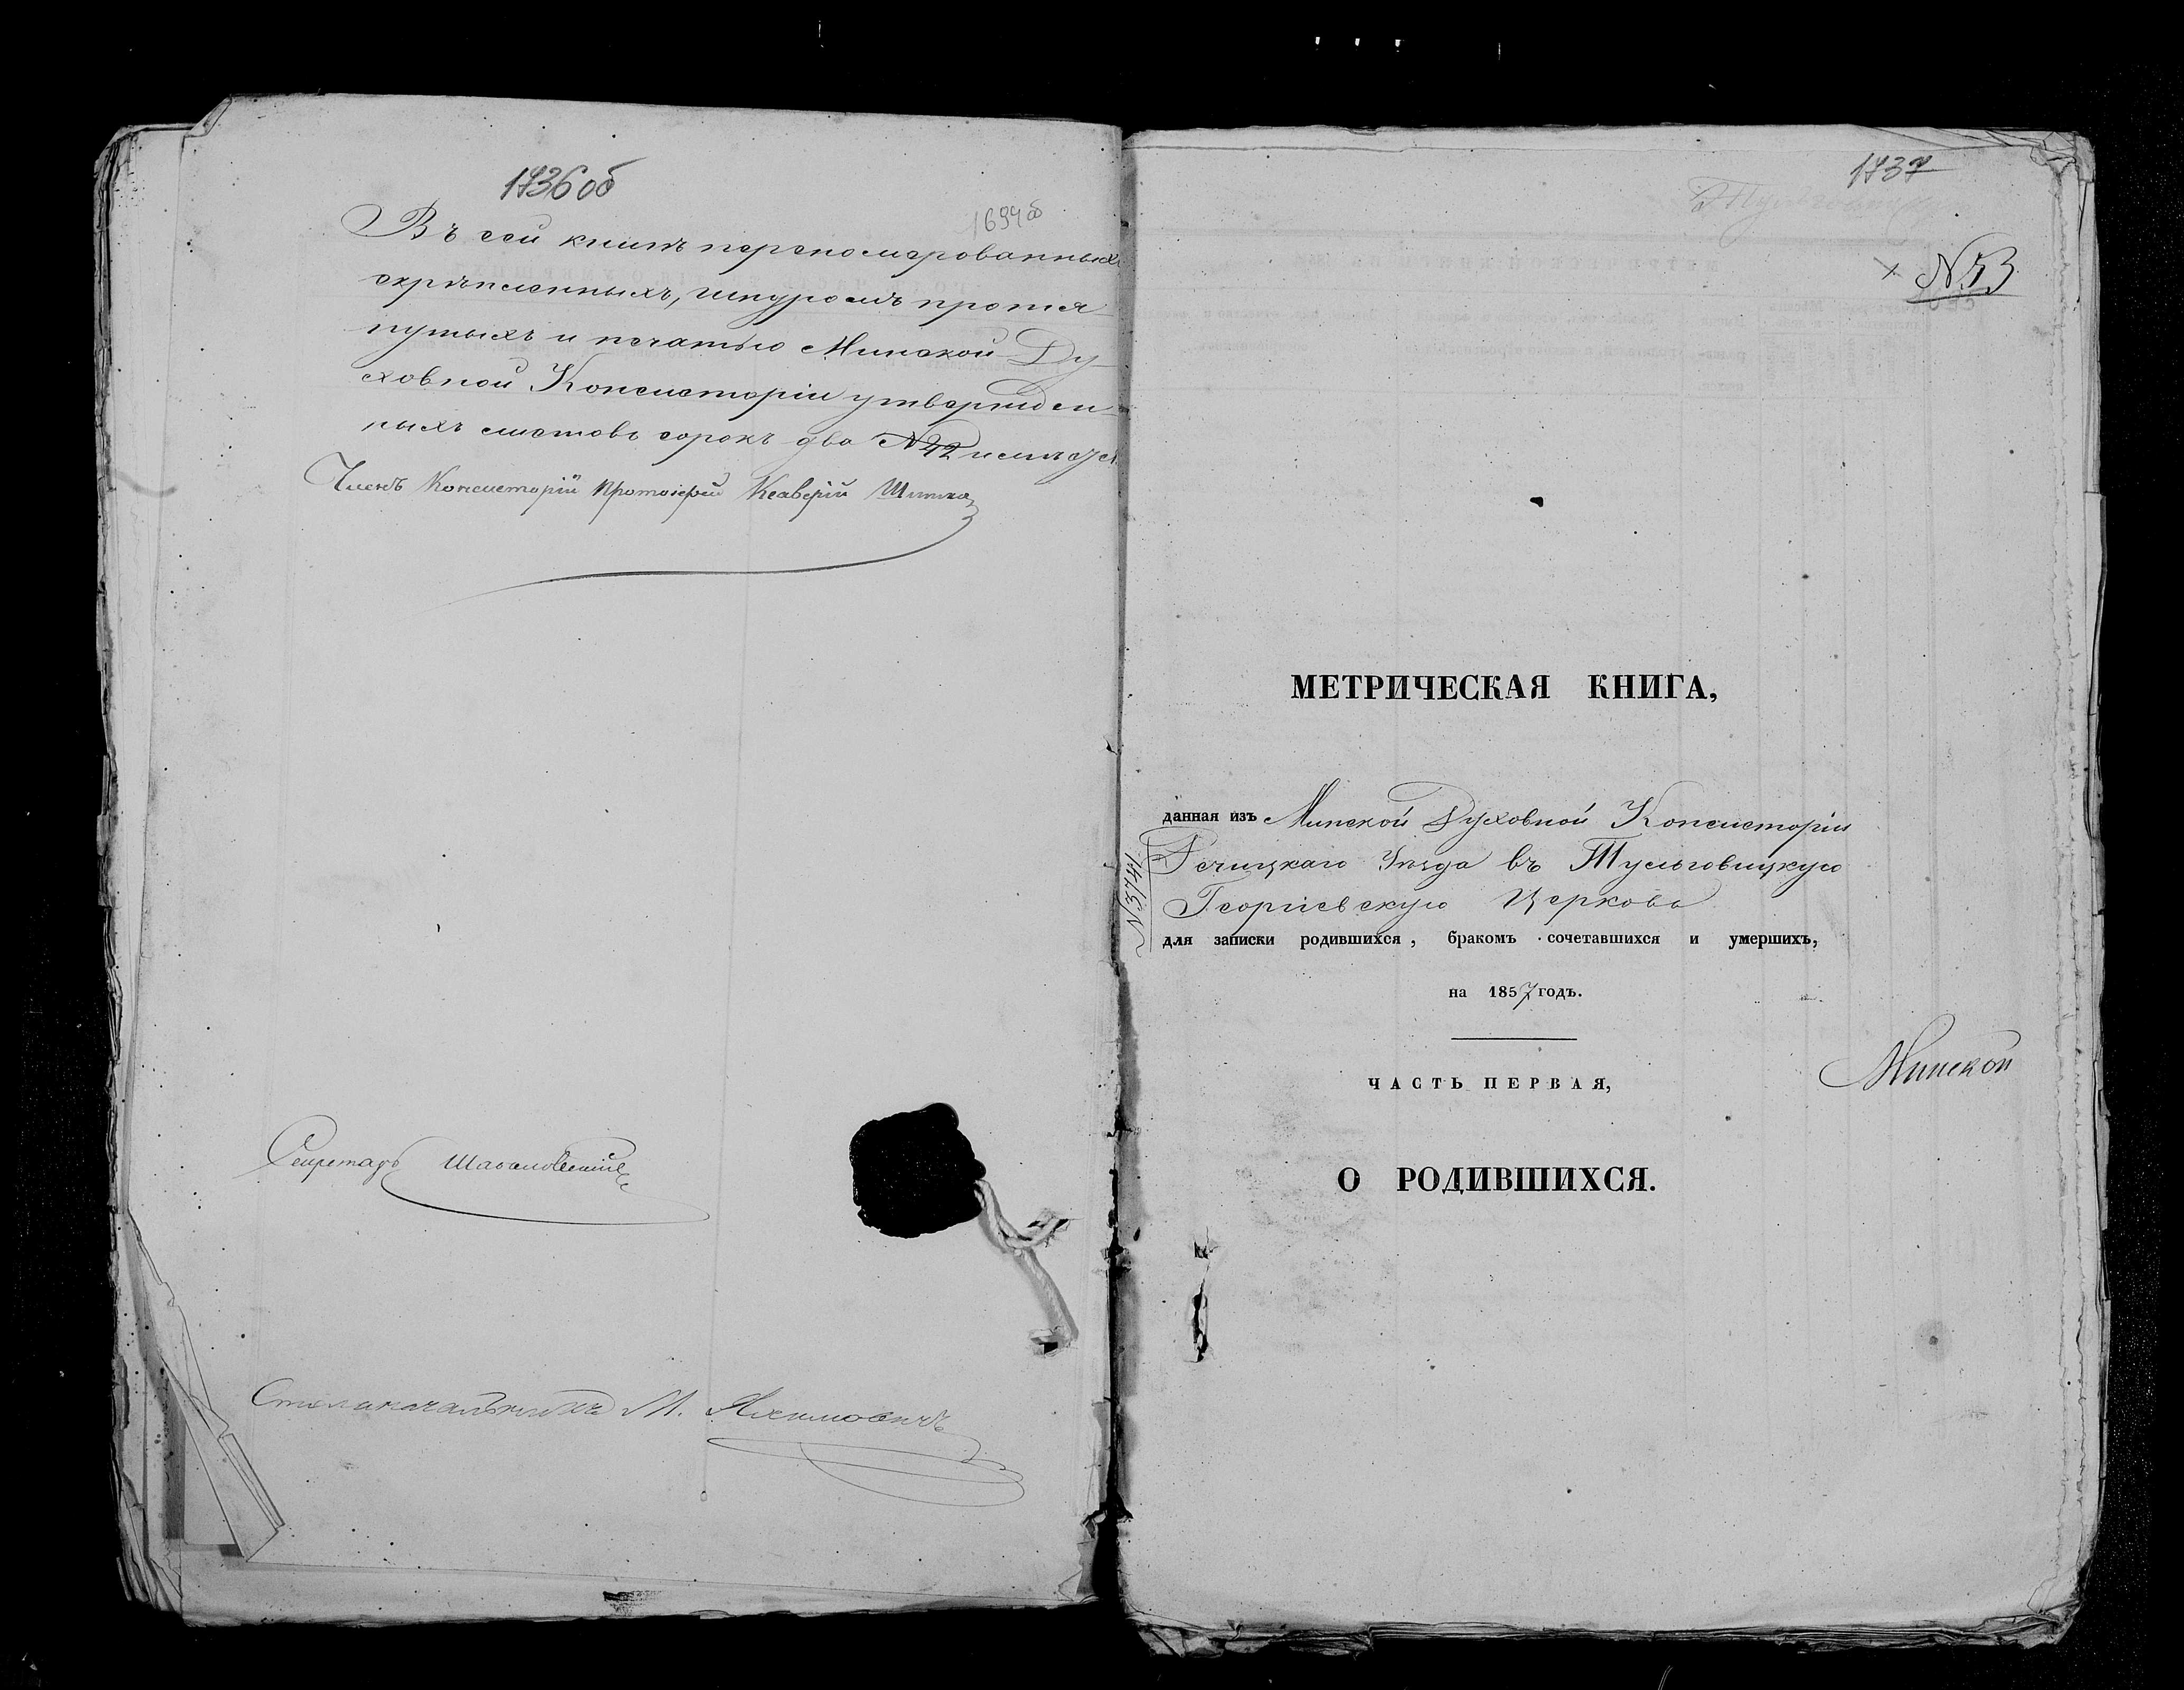 1736об
1694об
Въ сей книгѣ перенумерованныхъ
скрѣпленныхъ, шнуромъ протя
нутыхъ и печатью Минской Ду-
ховной Консисторіи утвержден-
ныхъ листовъ сорокъ два №42 имѣется
Членъ Консисторіи Протоіерей Ксаверій
Секретарь
Столоначальникъ М. Яхимовичъ
1737
№53
МЕТРИЧЕСКАЯ КНИГА,
данная изъ Минской Духовной Консисторіи
Речицкаго Уѣзда въ Тульговицкую
Георгіевскую Церковь
№3741
для записки родившихся, бракомъ сочетавшихся и умершихъ,
на 1857 годъ.
Минской
ЧАСТЬ ПЕРВАЯ,
О РОДИВШИХСЯ.